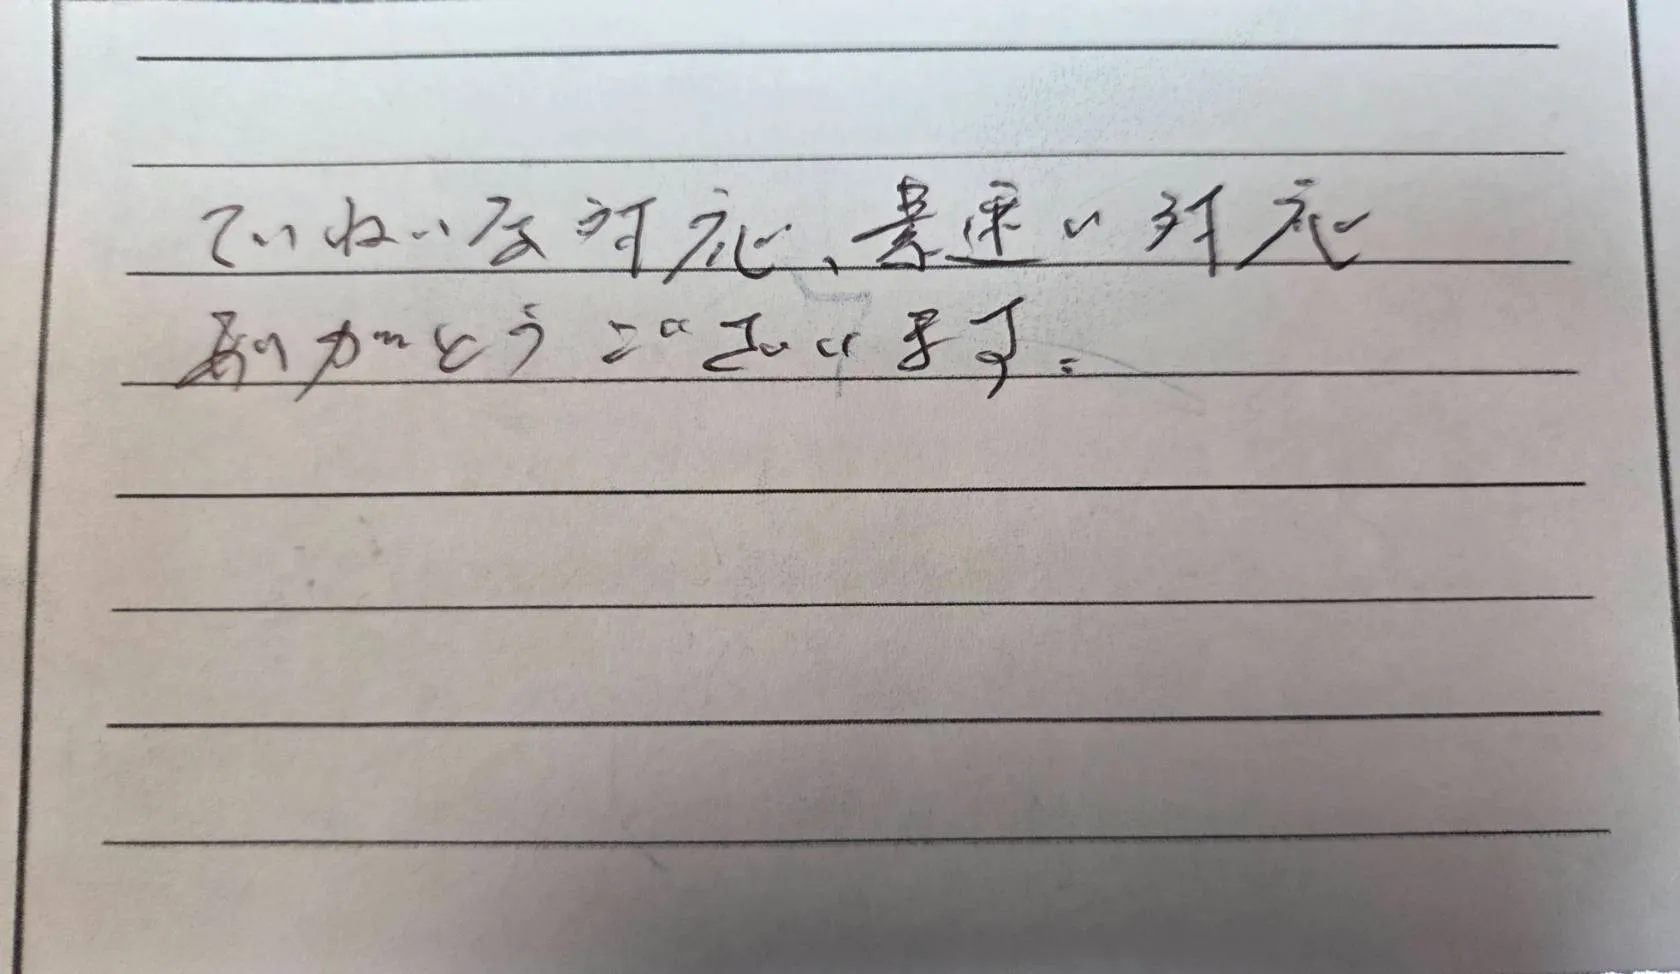 ていねいな対応、素速い対応
ありがとうございます。